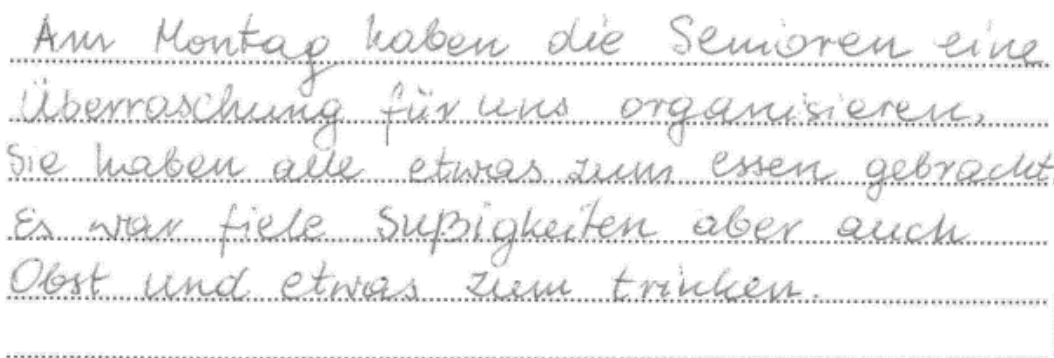 Am Montag haben die Senioren eine
Überraschung für uns organisieren.
Sie haben alle etwas zum essen gebracht.
Es war fiele Sußigkeiten aber auch
Obst und etwas zum trinken.